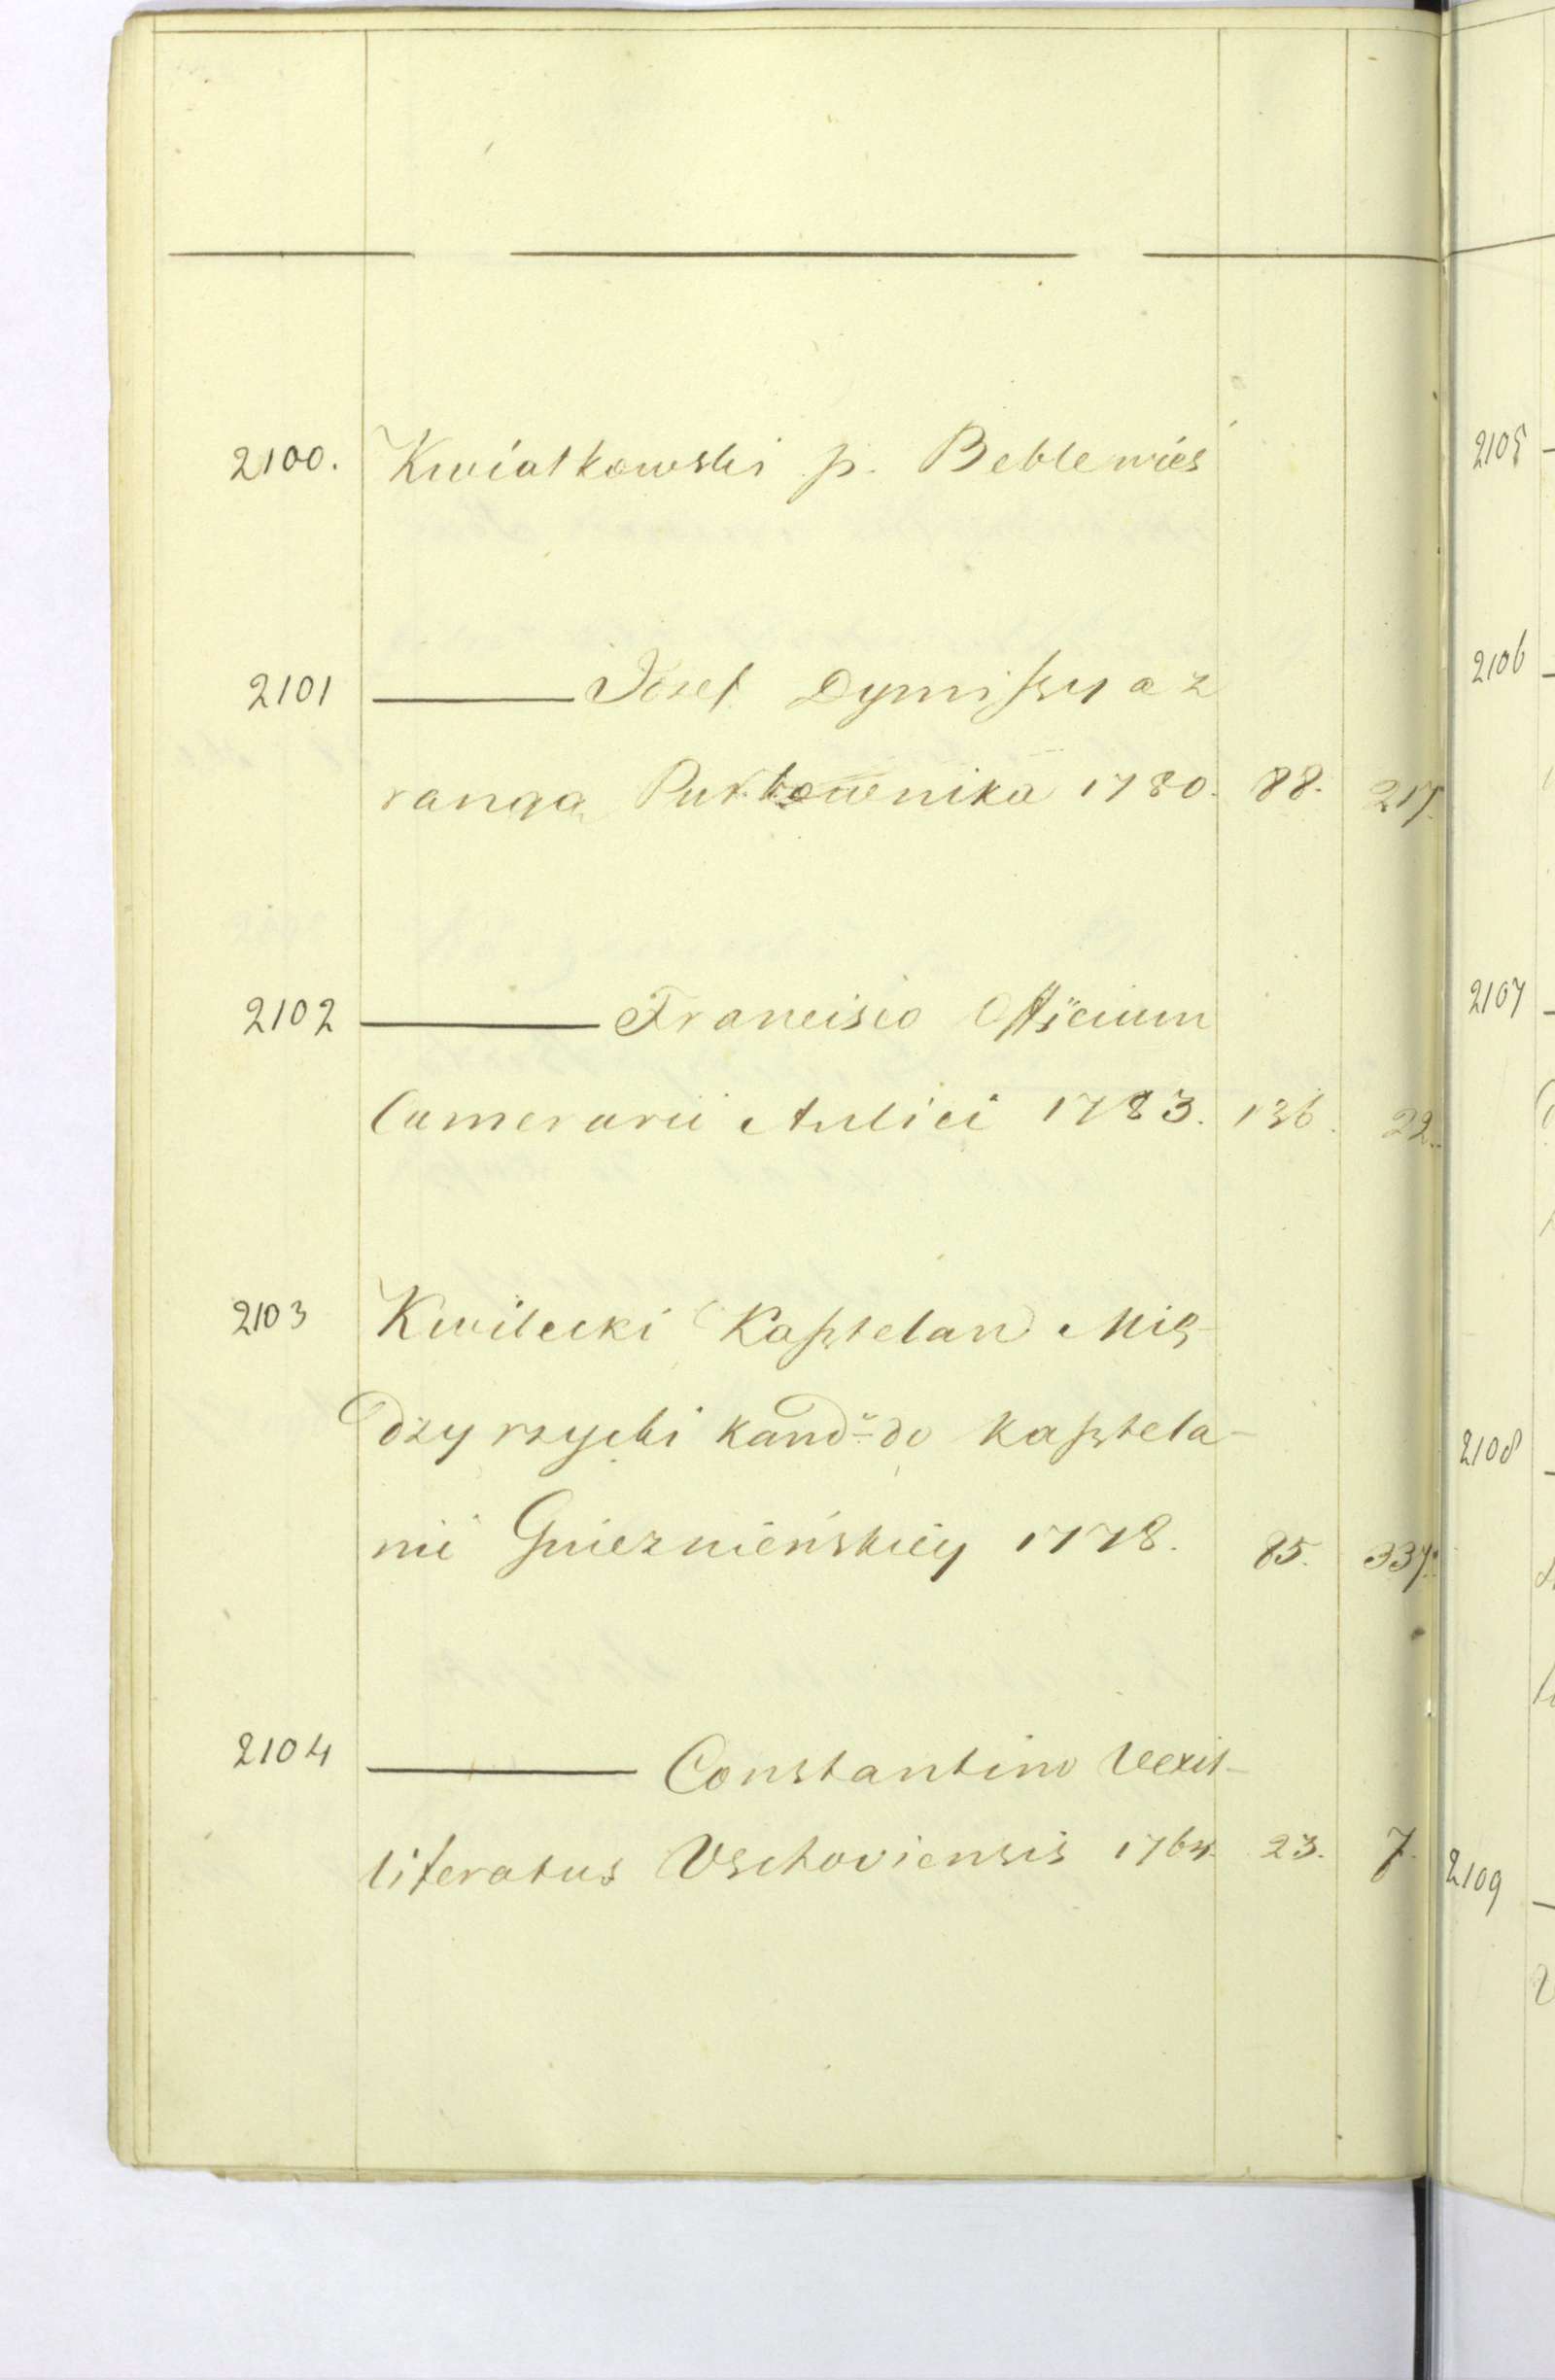 2100. Kwiatkowski p. Beblewieś
2101 Józef Dymissya z
rangą Pułkownika 1780. 88. 217.
2102 Francisco Officium
Camerarii Aulici 1783. 136. 22.
2103 Kwilecki Kasztelan Mię-
dzyrzycki kand. do Kasztela-
nii Gnieznieńskiey 1778. 85. 337.
2104 Constantino Vexil-
liferatus Vschoviensis 1764. 23. 7.
2105
2106
2107
2108
2109